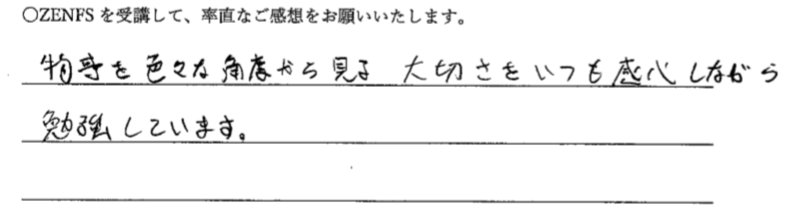 ○ZENFS を受講して、率直なご感想をお願いいたします。
物事を色々な角度から見る 大切さをいつも感心しながら
勉強しています。